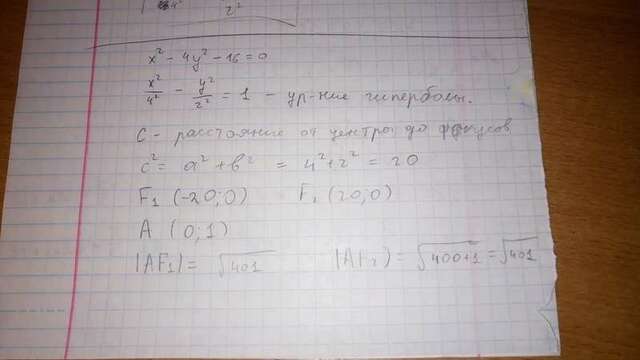 x² - 4y² - 16 = 0
x²/4² - y²/2² = 1 - ур-ние гиперболы.
С - расстояние от центра до фокусов
c² = a² + b² = 4² + 2² = 20
F₁ (-20; 0) F₂ (20; 0)
A (0; 1)
|AF₁| = √401 |AF₂| = √400+1 = √401